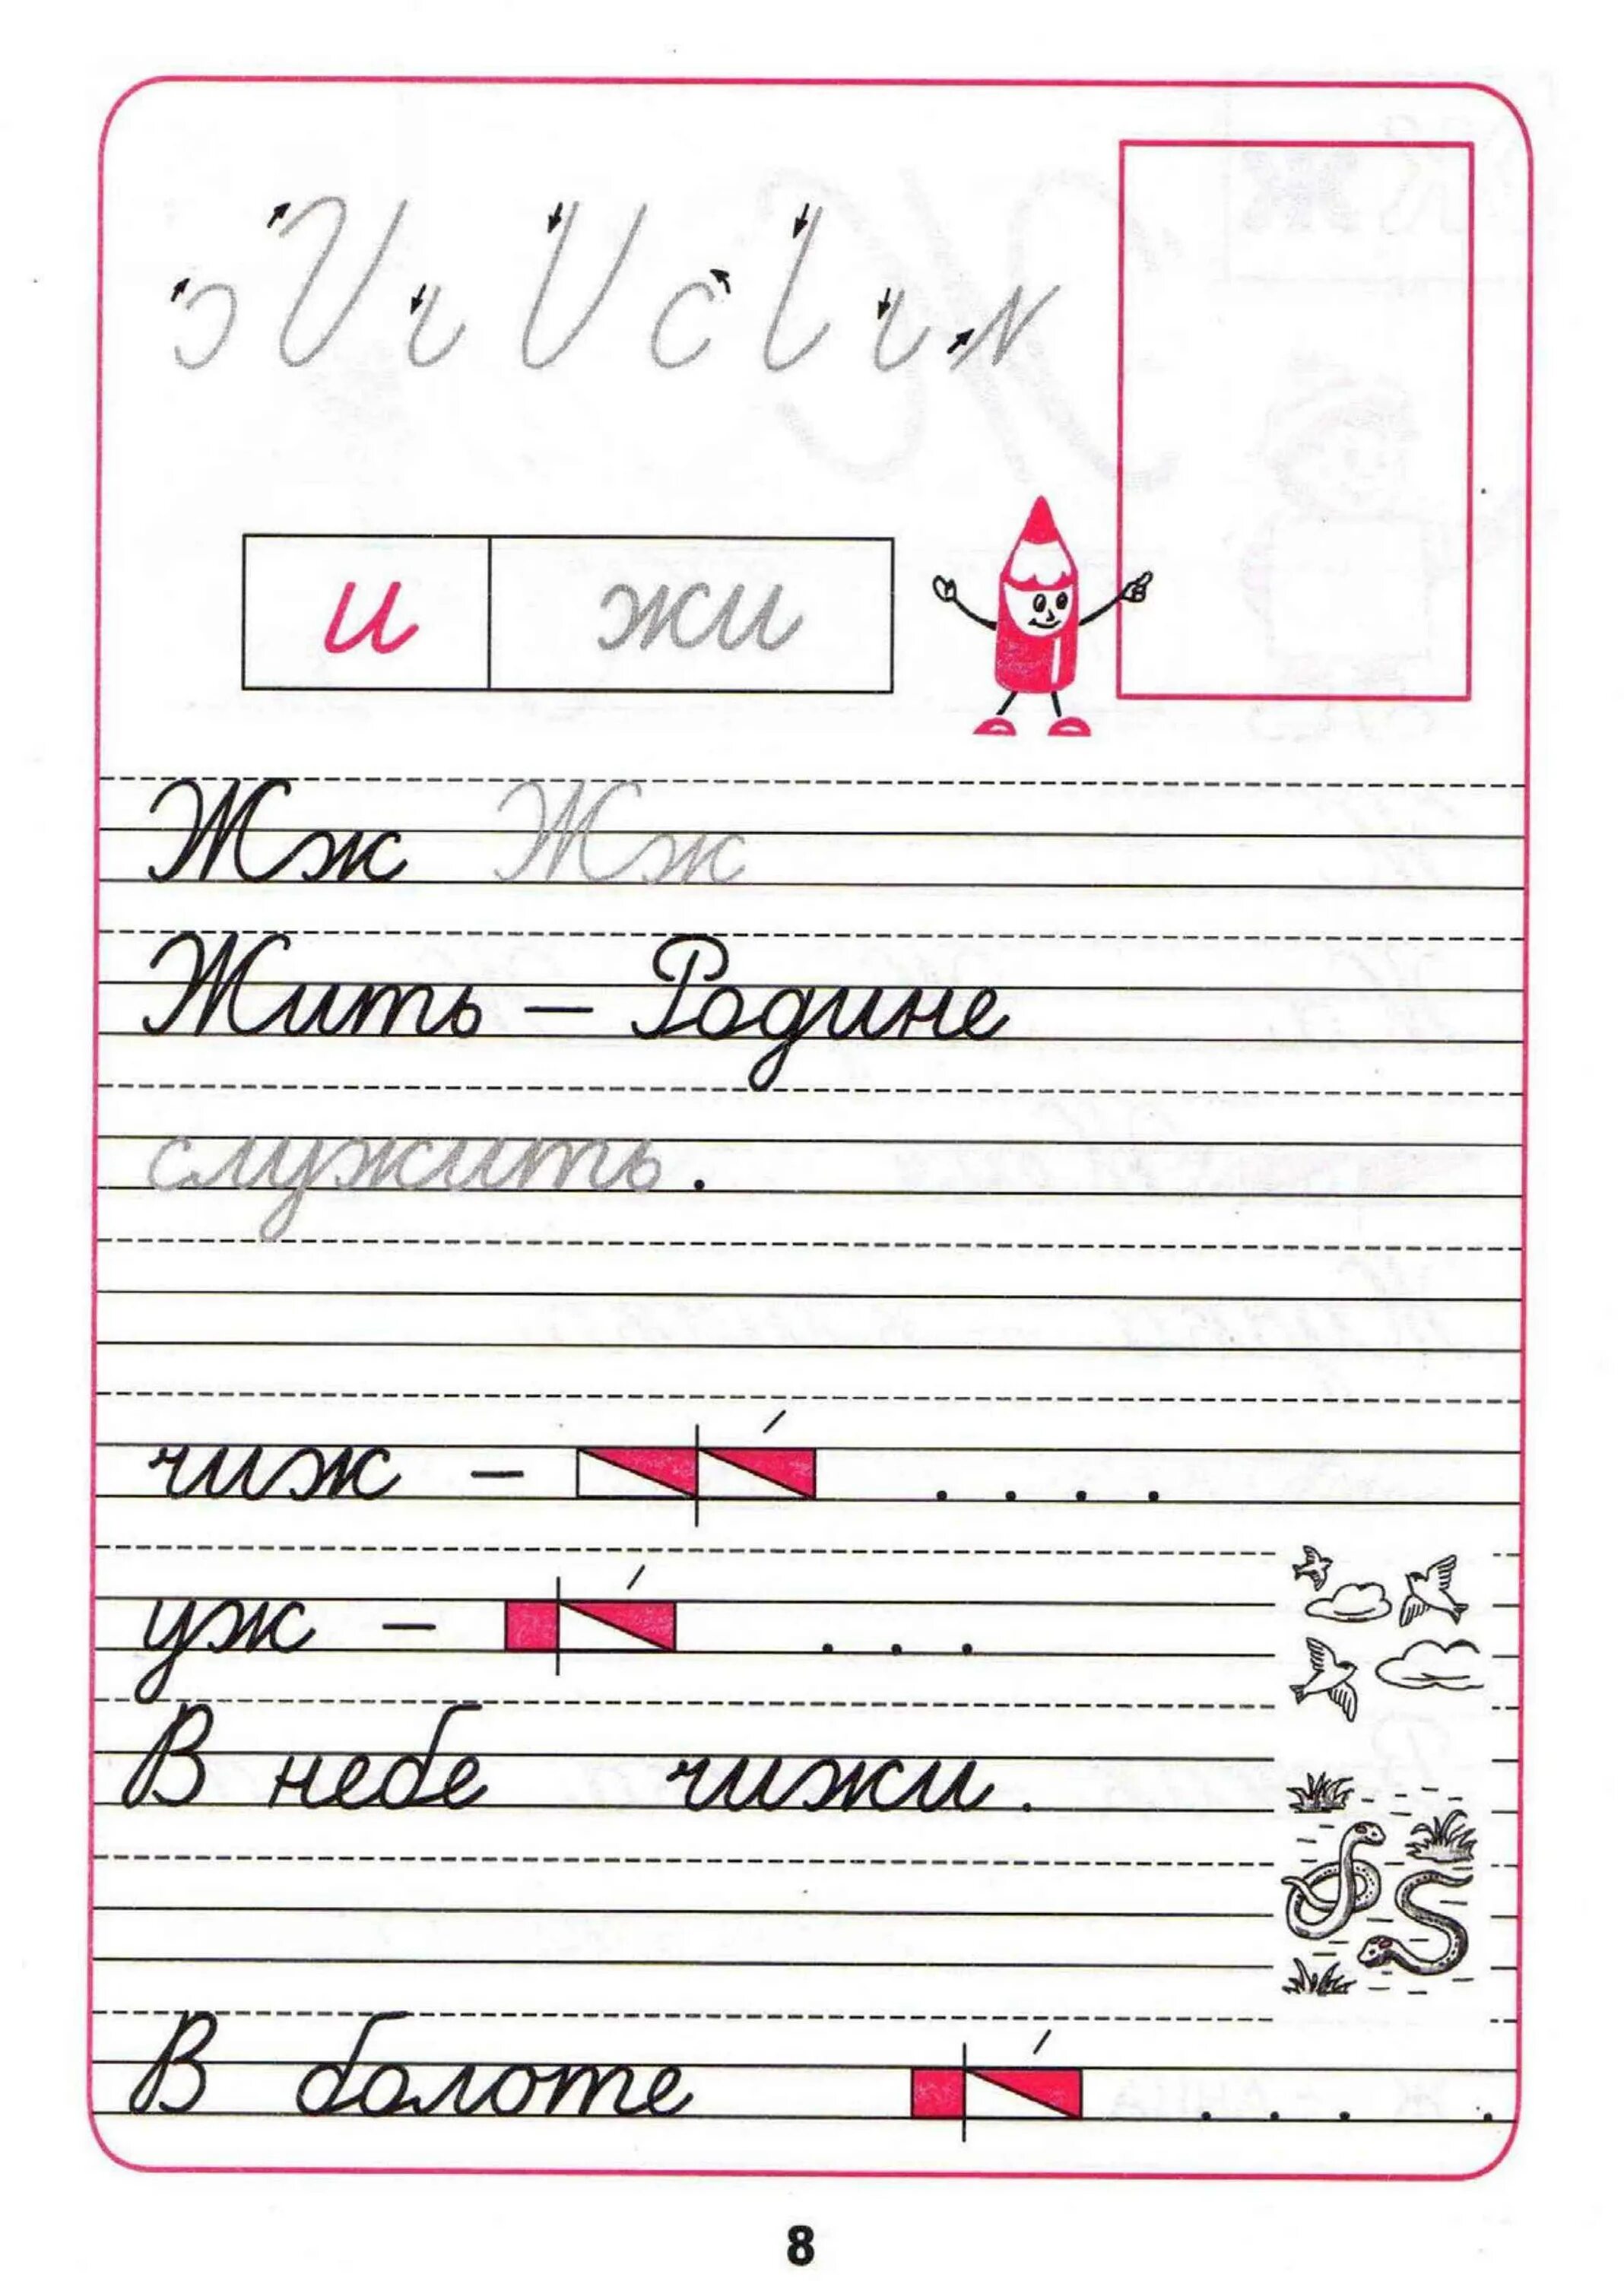 и жи
Жж Жж
Жить – Родине
служить.
чиж – . . . .
уж – . . .
В небе чижи.
В болоте . . . .
8